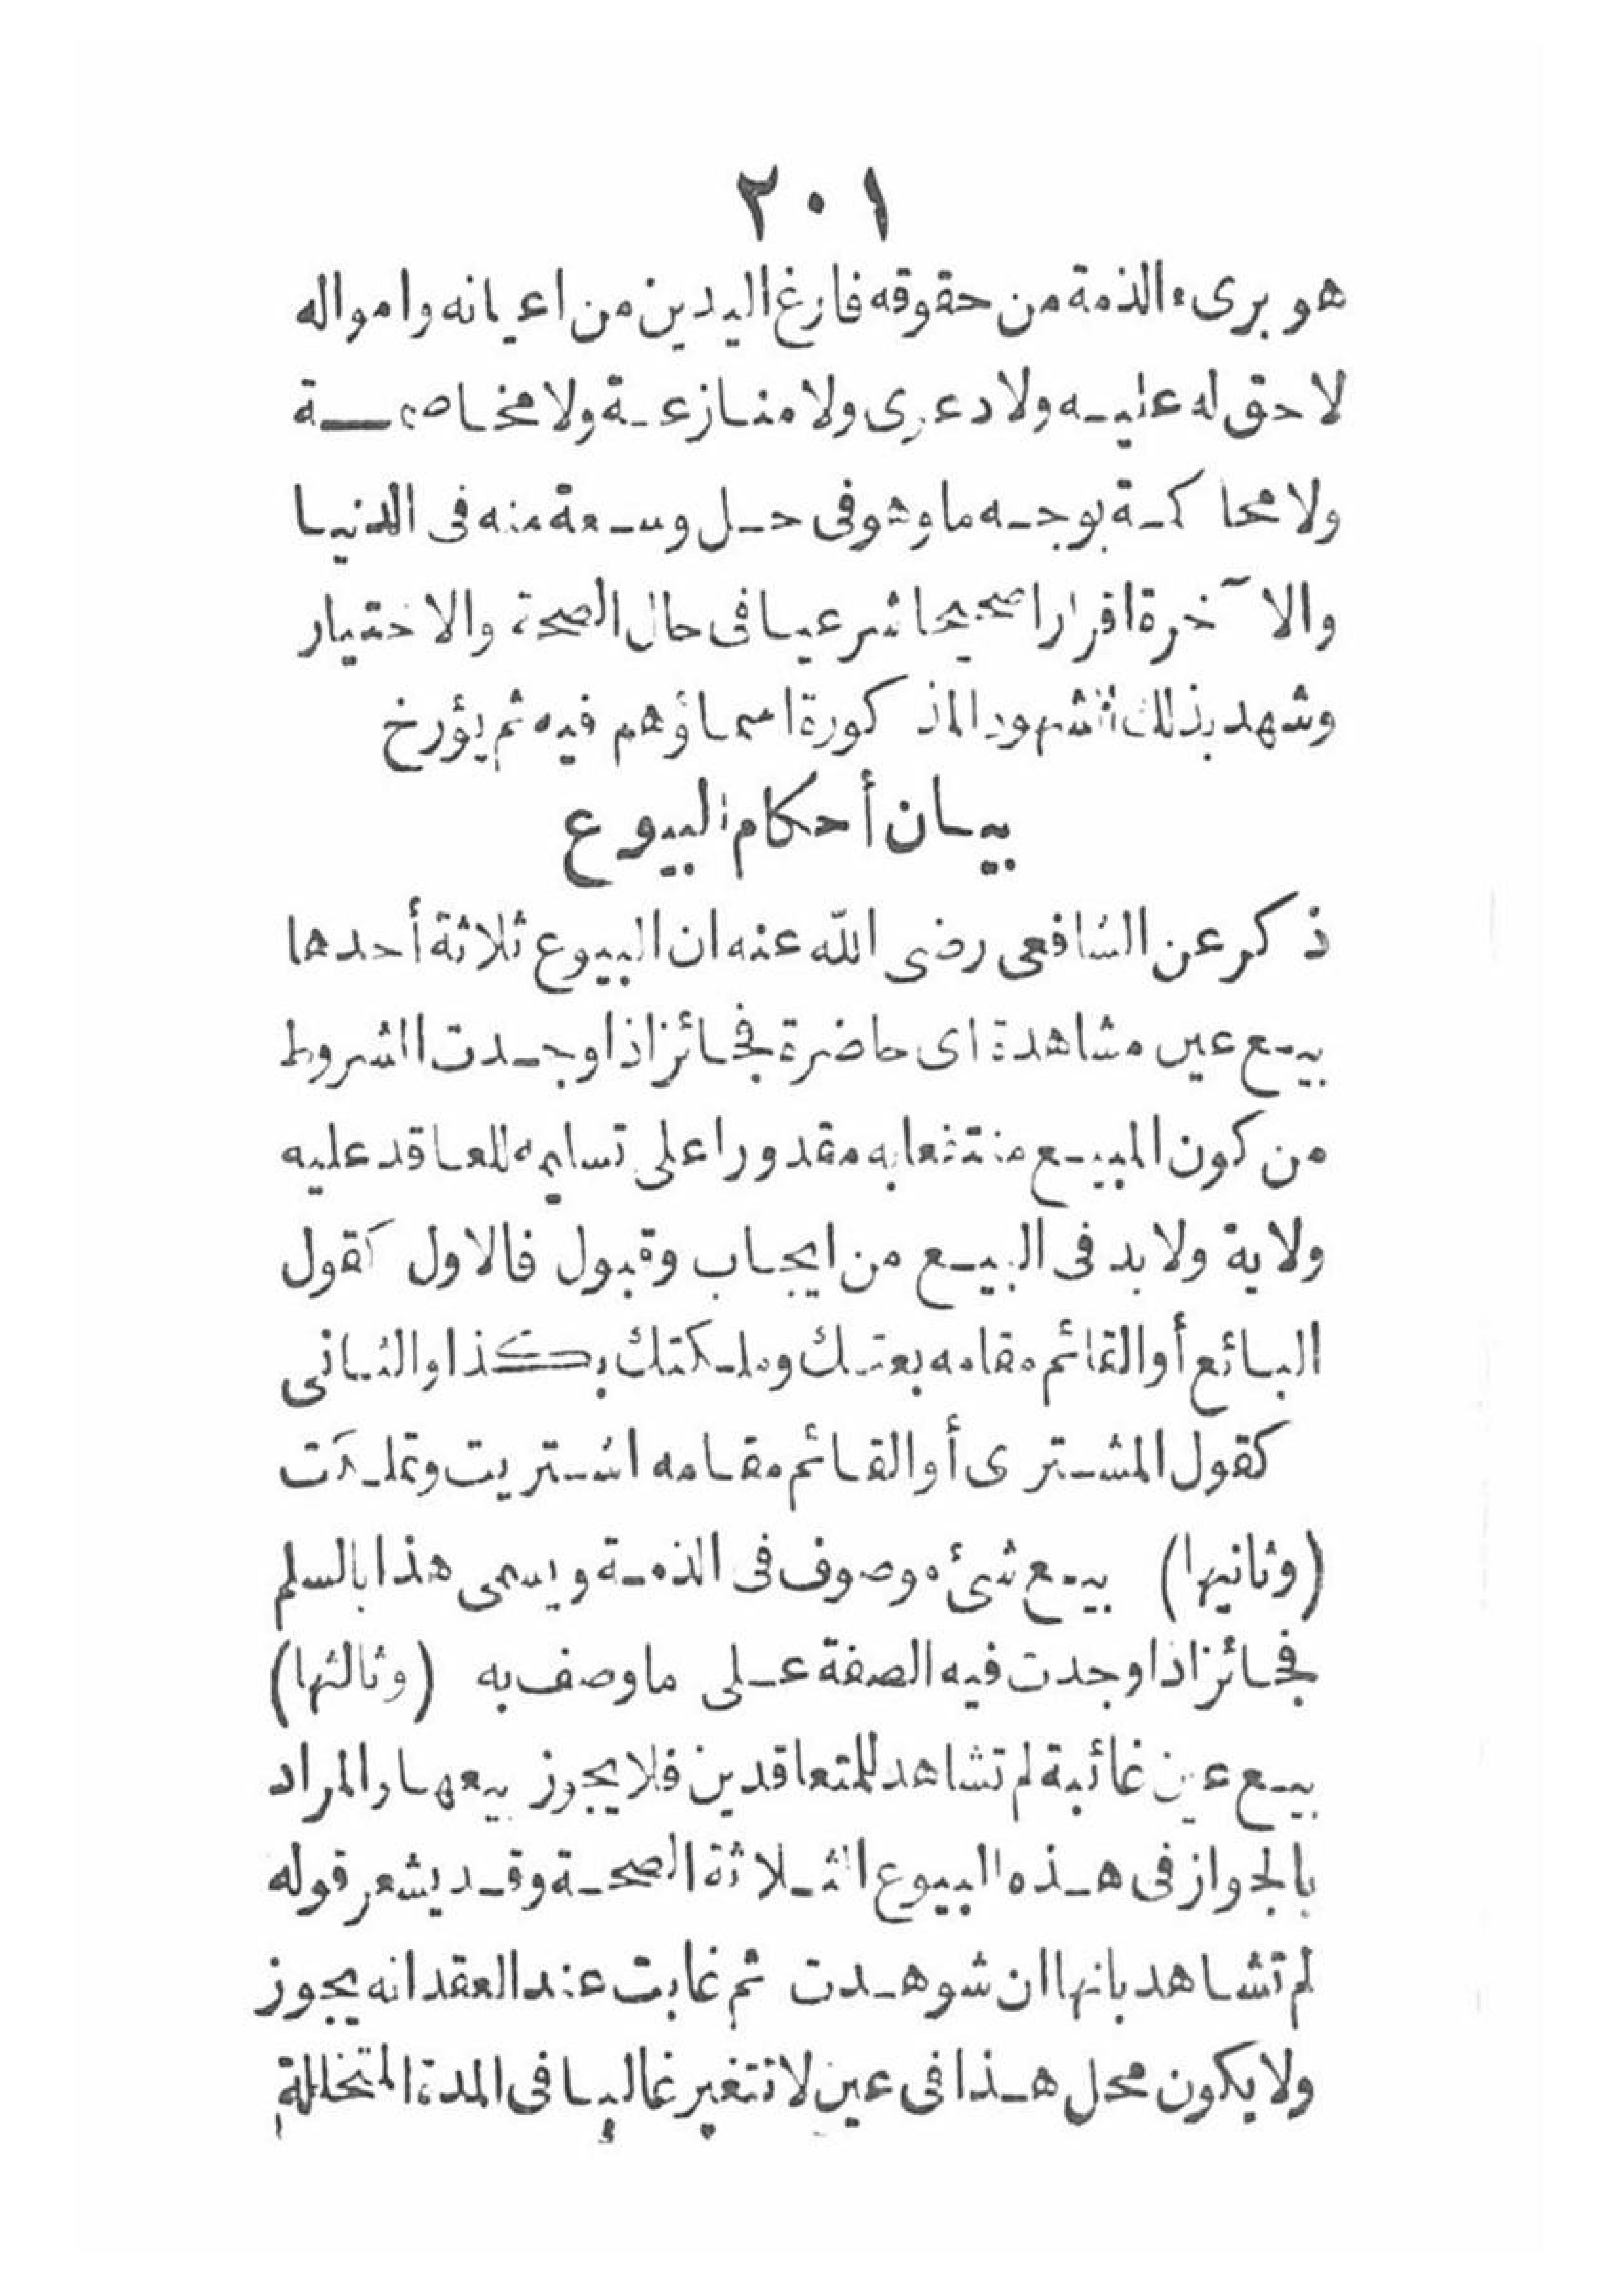 ٢٠١
هو برىء الذمة من حقوقه فارغ اليدين من اعيانه وامواله
لا حق له عليه ولا دعوى ولا منازعة ولا مخاصمة
ولا محاكمة بوجه ما وهو فى حل وسعة منه فى الدنيا
والآخرة اقرارا صحيحا شرعيا فى حال الصحة والاختيار
وشهد بذلك الشهود المذكورة اسماؤهم فيه ثم يؤرخ
بيان أحكام البيوع
ذكر عن الشافعى رضى الله عنه ان البيوع ثلاثة أحدها
بيع عين مشاهدة اى حاضرة فجائز اذا وجدت الشروط
من كون المبيع منتفعا به مقدورا على تسليمه للعاقد عليه
ولاية ولا بد فى البيع من ايجاب وقبول فالاول كقول
البائع أو القائم مقامه بعتك وملكتك بكذا والثانى
كقول المشترى أو القائم مقامه اشتريت وتملكت
(وثانيها) بيع شئ موصوف فى الذمة ويسمى هذا بالسلم
فجائز اذا وجدت فيه الصفة على ما وصف به (وثالثها)
بيع عين غائبة لم تشاهد للمتعاقدين فلا يجوز بيعها والمراد
بالجواز فى هذه البيوع الثلاثة الصحة وقد يشعر قوله
لم تشاهد بانها ان شوهدت ثم غابت عند العقد انه يجوز
ولا يكون محل هذا فى عين لا تتغير غالبا فى المدة المتخللة